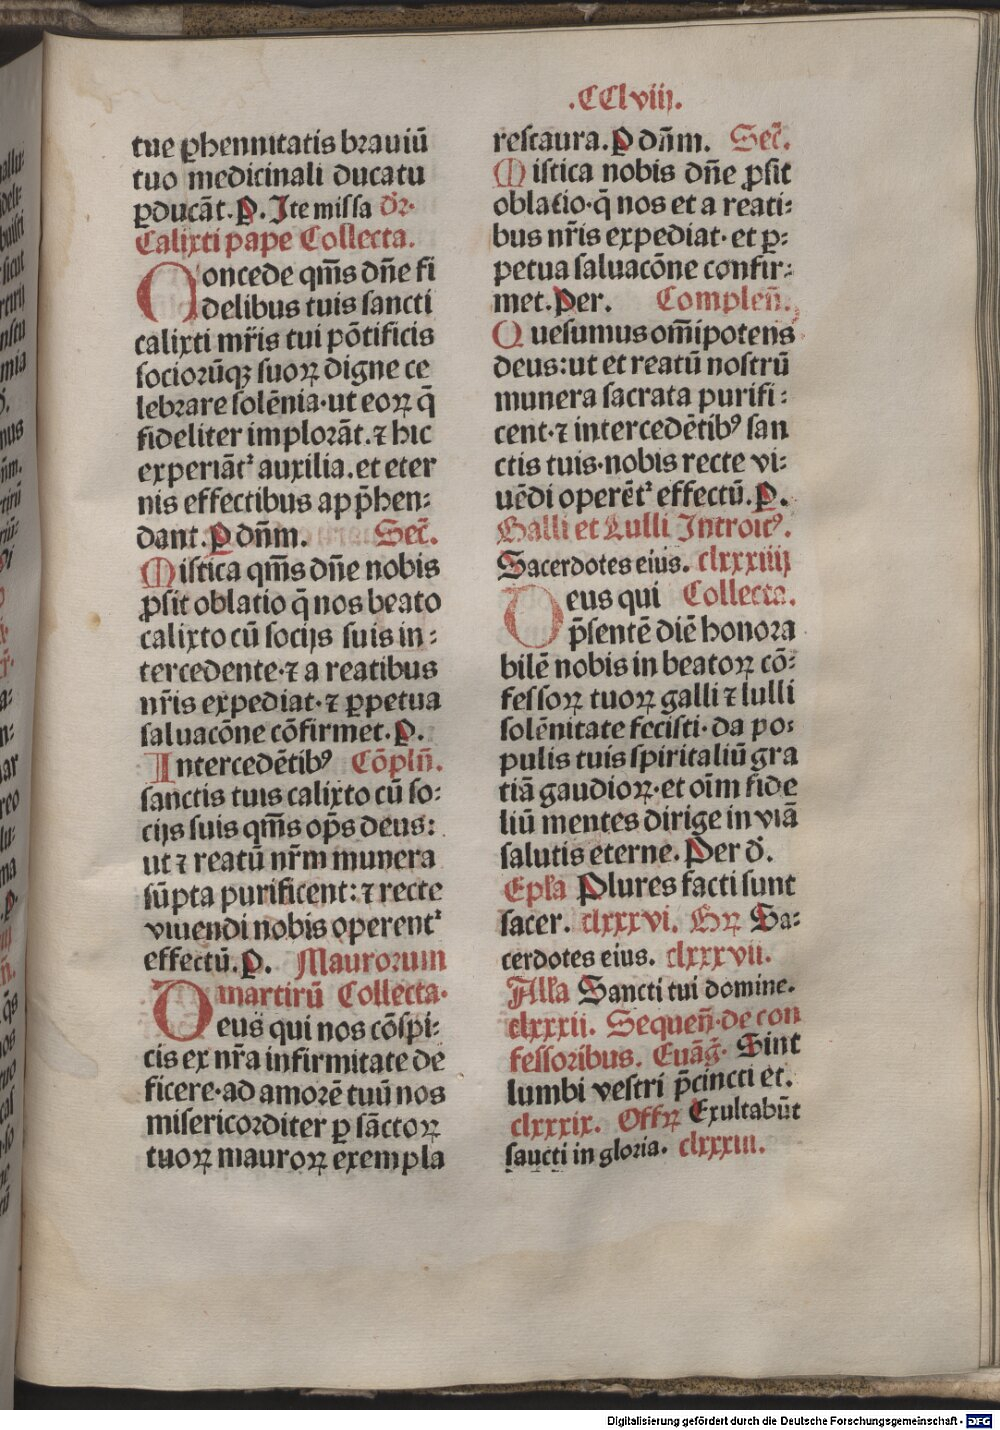 .CClviij.
tue ꝑhennitatis brauiū
tuo medicinali ducatu
ꝑducāt. P. Ite missa dr̄.
Calixti pape Collecta.
Concede qm̄s dn̄e fi
delibus tuis sancti
calixti mr̄is tui pōtificis
socioꝛūqꝫ suoꝝ digne ce
lebꝛare solēnia·ut eoꝝ q̄
fideliter imploꝛāt.⁊ hic
experiāt᷑ auxilia.et eter
nis effectibus app̄hen:
dant. P dn̄m. Sec̄.
Mistica qm̄s dn̄e nobis
ꝓsit oblatio q̄ nos beato
calixto cū socijs suis in:
tercedente·⁊ a reatibus
nr̄is expediat·⁊ ꝑpetua
saluacōne cōfirmet. P.
Intercedētibꝰ Cōpln̄.
sanctis tuis calixto cū so:
cijs suis qm̄s op̄s deus:
ut ⁊ reatū nr̄m munera
sūpta purificent:⁊ recte
viuendi nobis operent᷑
effectū. P. Mauroꝛum
martirū Collecta.
Deus qui nos cōspi:
cis ex nr̄a infirmitate de
ficere·ad amoꝛē tuū nos
misericoꝛditer ꝑ sāctoꝝ
tuoꝝ mauroꝝ exempla
restaura. P dn̄m. Sec̄.
Mistica nobis dn̄e ꝓsit
oblatio·q̄ nos et a reati:
bus nr̄is expediat·et ꝑ:
petua saluacōne confir:
met. Per. Complen̄.
Quesumus om̄ipotens
deus:ut et reatū nostrū
munera sacrata purifi:
cent·⁊ intercedētibꝰ san
ctis tuis·nobis recte vi:
uēdi operēt᷑ effectū. P.
Galli et Lulli Introitꝰ.
Sacerdotes eius. clxxxiiij
Deus qui Collecta.
p̄sentē diē honoꝛa
bilē nobis in beatoꝝ cō:
fessoꝝ tuoꝝ galli ⁊ lulli
solēnitate fecisti·da po:
pulis tuis spiritaliū gra
tiā gaudioꝝ·et oīm fide
liū mentes dirige in viā
salutis eterne. Per d̄.
Ep̄la Plures facti sunt
sacer. clxxxvi. Gꝝ Sa:
cerdotes eius. clxxxvii.
All̄a Sancti tui domine.
clxxxii. Sequen̄·de con
fessoribus. Euāḡ. Sint
lumbi vestri p̄cincti et.
clxxxix. Offꝝ Exultabūt
sancti in gloria. clxxxiii.
Digitalisierung gefördert durch die Deutsche Forschungsgemeinschaft - DFG